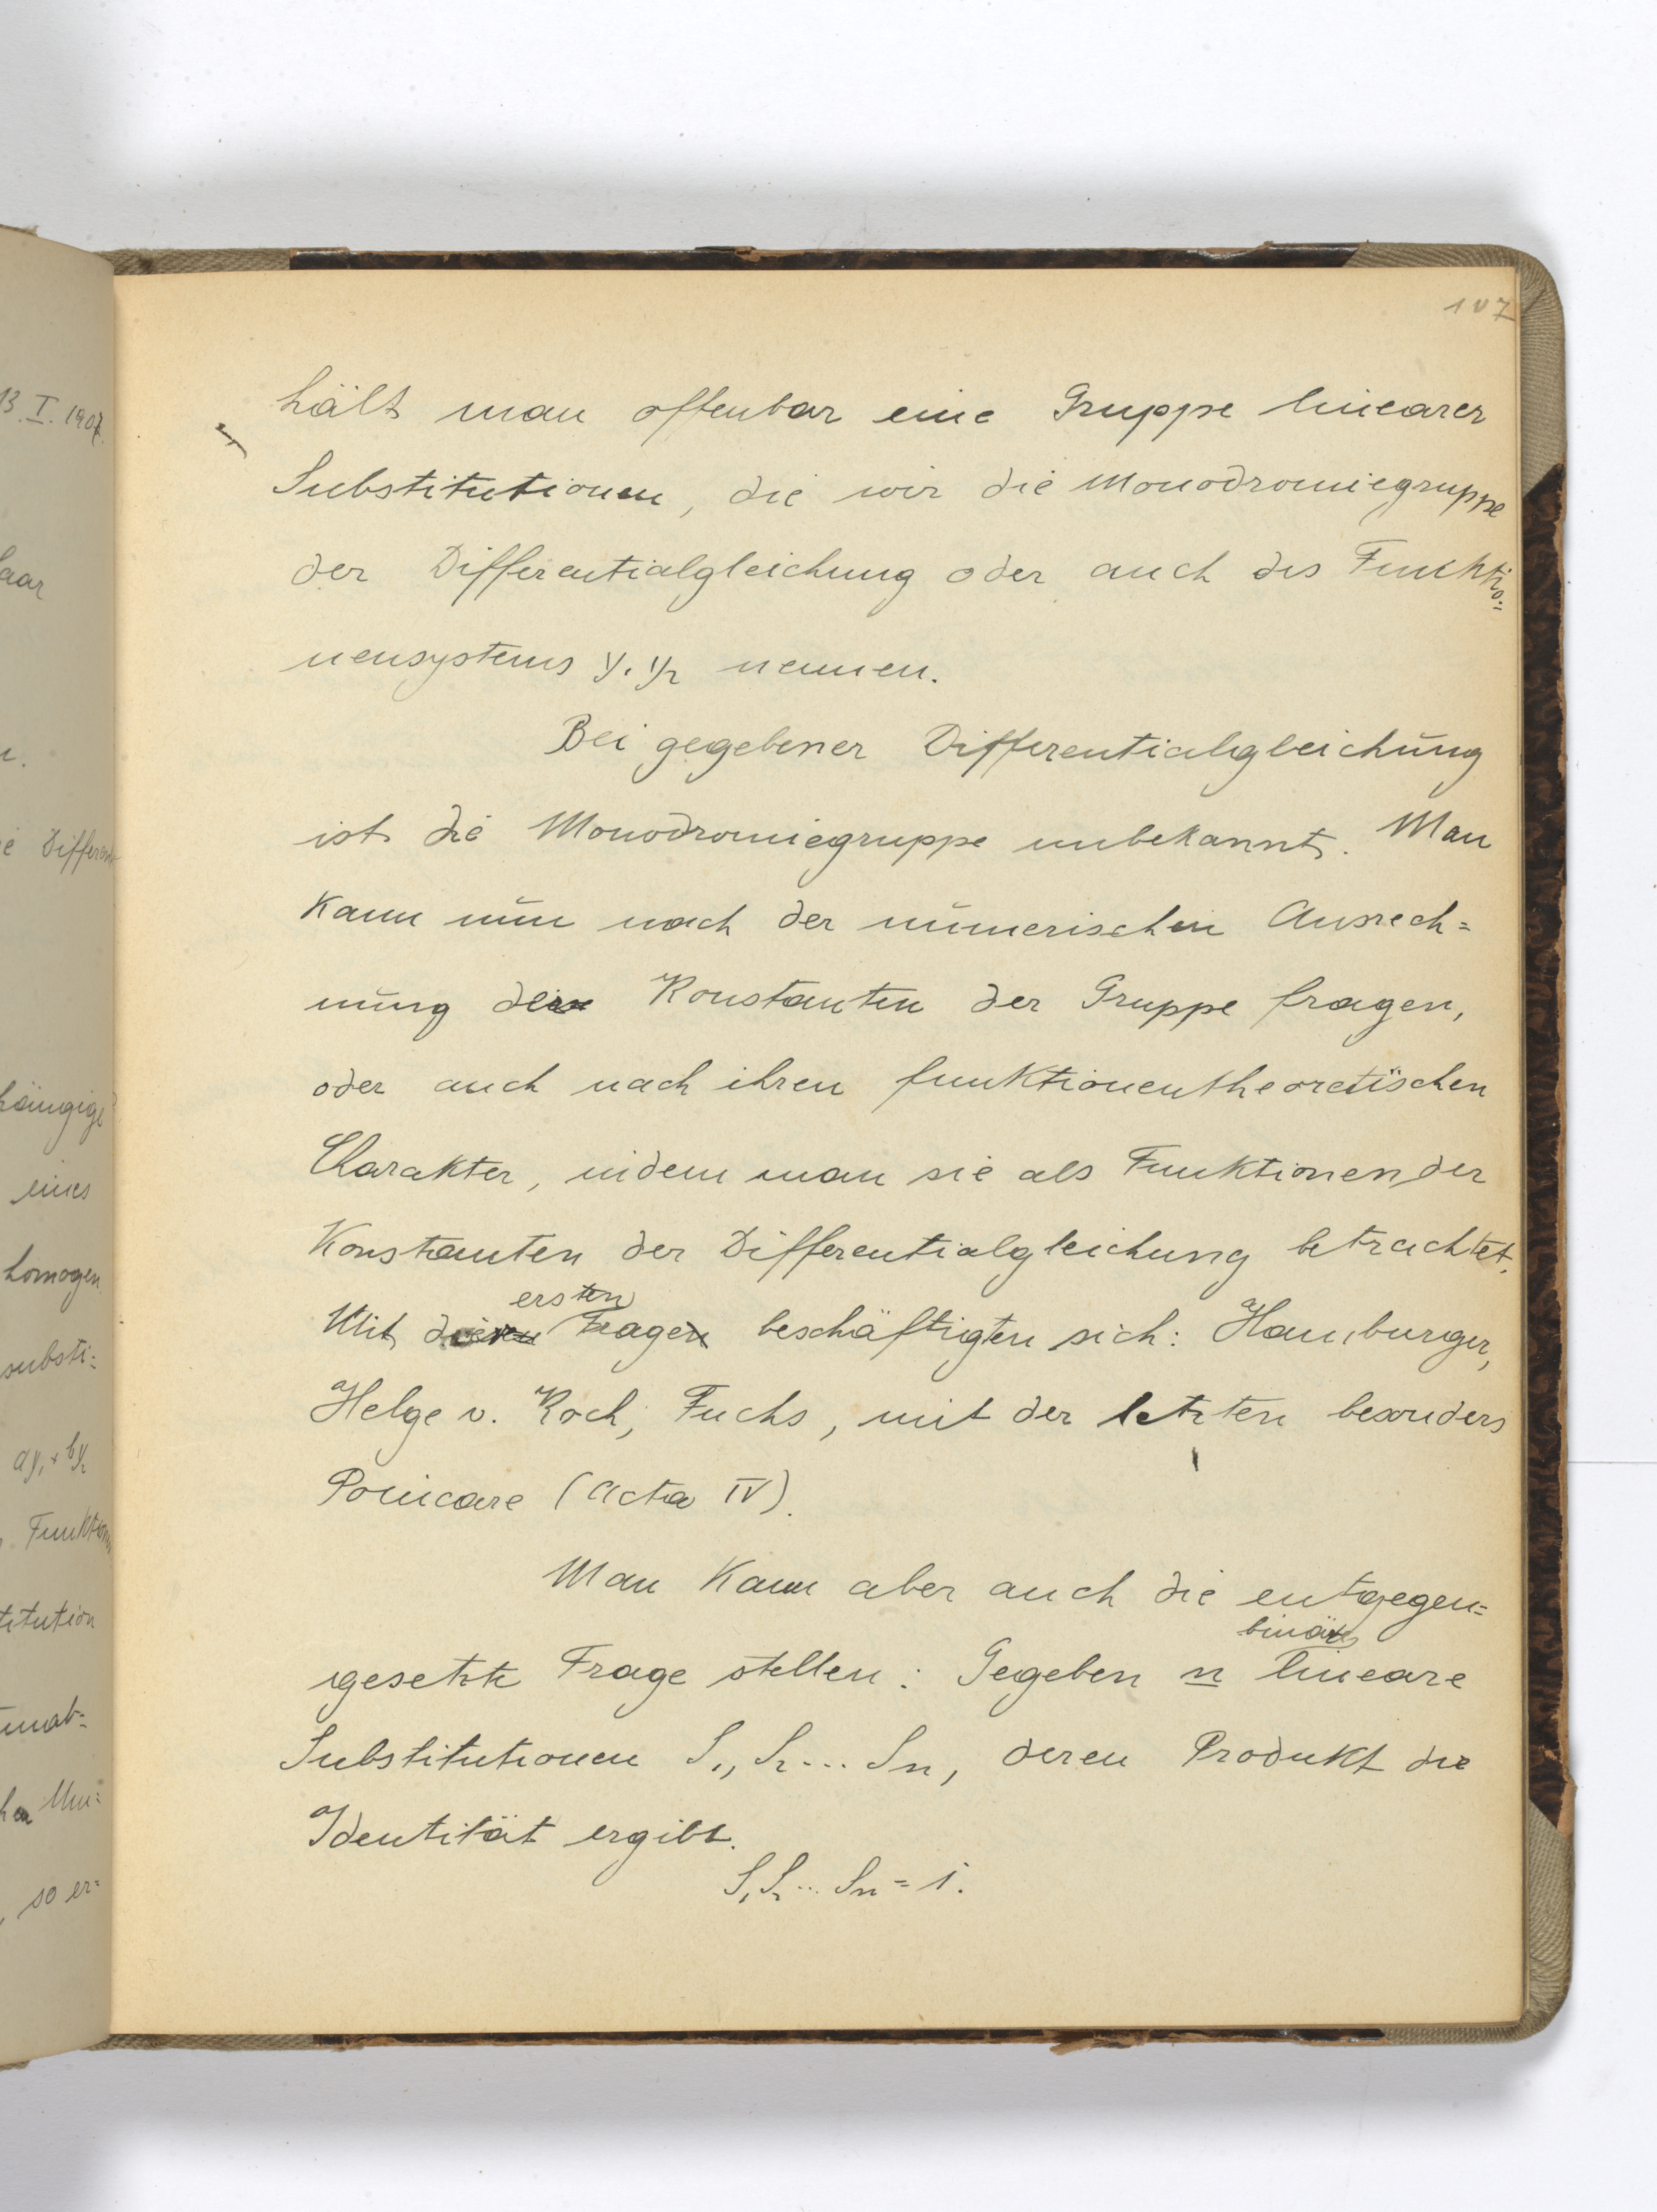 107
hält man offenbar eine Gruppe linearer
Substitutionen, die wir die Monodromiegruppe
der Differentialgleichung oder auch des Funktio-
nensystems y₁ y₂ nennen.
Bei gegebener Differentialgleichung
ist die Monodromiegruppe unbekannt. Man
kann nun nach der numerischen Ausrech=
nung der Konstanten der Gruppe fragen,
oder auch nach ihren funktionentheoretischen
Charakter, indem man sie als Funktionen der
Konstanten der Differentialgleichung betrachtet.
ersten
Mit der Frage beschäftigten sich: Hamburger,
Helge v. Koch, Fuchs, mit der letzten besonders
Poincare (Acta IV).
Man kann aber auch die entgegen=
binäre
gesetzte Frage stellen: Gegeben n lineare
Substitutionen S₁, S₂... Sn, deren Produkt die
Identität ergibt.
S₁S₂... Sn = 1.
13. I. 1907.
aar
ie Differen
hängige
eines
homogen
substi=
ay₁ + by₂
Funktion
titution
unab=
Um=
, so er=